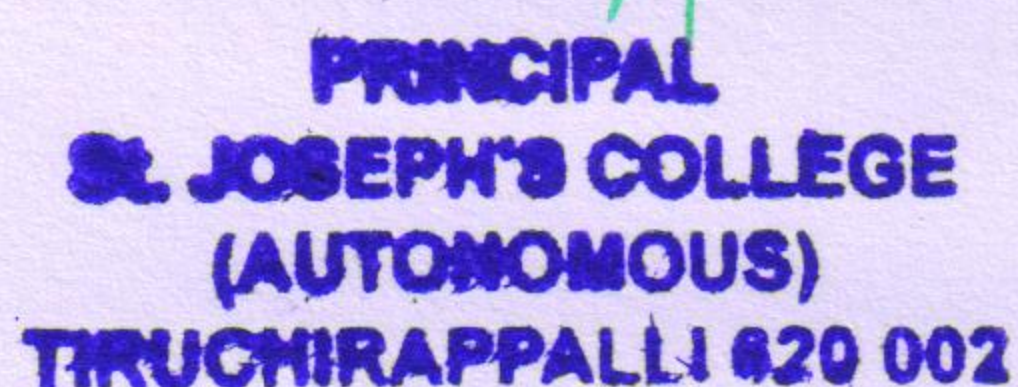 PRINCIPAL
St. JOSEPH'S COLLEGE
(AUTONOMOUS)
TIRUCHIRAPPALLI 620 002